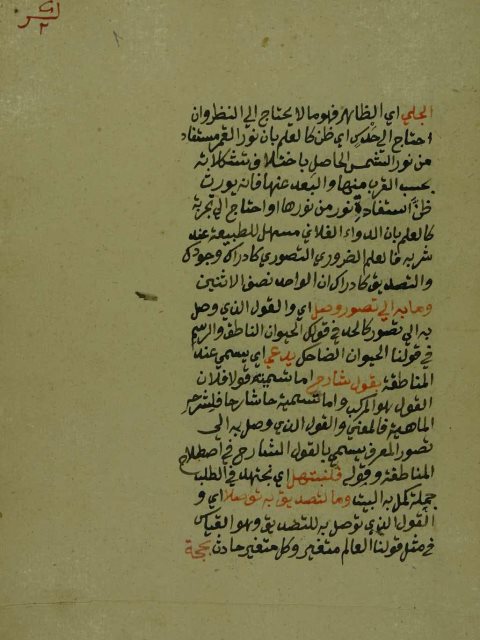 الجلي اي الظاهر فهو ما لا يحتاج الى النظر وان
احتاج الى حدس اي ظن كالعلم بان نور القمر مستفاد
من نور الشمس الحاصل باختلاف تشكلاته
بحسب القرب منها والبعد عنها فانه يورث
ظن استفادة نور من نورها او احتاج الى تجربة
كالعلم بان الدواء الفلاني مسهل للطبيعة عند
شربه فالعلم الضروري التصوري كادراك وجودك
والتصديق كادراك ان الواحد نصف الاثنين
وما به الى تصور وصل اي والقول الذي وصل
به الى تصور كالحد في قولك الحيوان الناطق والرسم
في قولنا الحيوان الضاحك يدعى اي يسمى عند
المناطقة بقول شارح اما تسميته قولا فلان
القول هو المركب واما تسميته شارحا فلشرحه
الماهية فالمعنى والقول الذي وصل به الى
تصور المعرف يسمى بالقول الشارح في اصطلاح
المناطقة وقوله فلنبتهل اي نجتهد في الطلب
جملة كمل به البيت وما لتصديق به توصلا اي و
القول الذي توصل به للتصديق وهو القياس
في مثل قولنا العالم متغير وكل متغير حادث بحجة